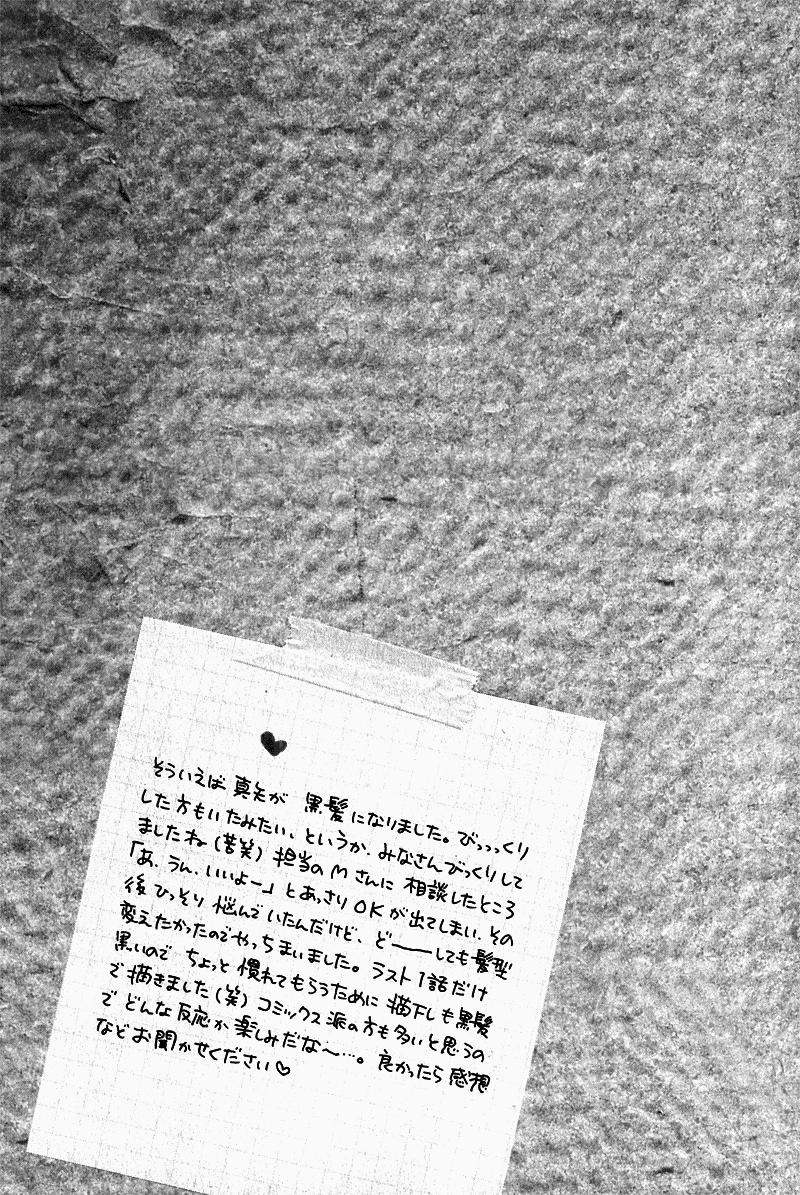 ♥
そういえば 真矢が 黒髪になりました。びっっっくり
した方もいたみたい、というか、みなさんびっくりして
ましたね（苦笑）担当のMさんに 相談したところ
「あ、うん、いいよー」とあっさりOKが出てしまい、その
後ひっそり 悩んでいたんだけど、ど───しても髪型
変えたかったのでやっちまいました。ラスト1話だけ
黒いので ちょっと 慣れてもらうために 描下しも黒髪
で描きました（笑）コミックス派の方も多いと思うの
で どんな反応か 楽しみだな〜…。良かったら感想
などお聞かせください♡